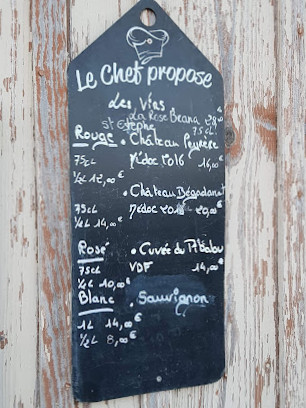 Le Chef propose
Les Vins
La Rose Brana 29,00€
St Estèphe 75cl
Rouge • Château Peyrère
75cl Médoc 2016 16,00€
½L 12,00€
• Château Bégadanet
75cl Médoc 20,00€
½L 14,00€
Rosé • Cuvée du Pitbalou
75cl VDF 14,00€
½L 10,00€
Blanc • Sauvignon
1L 14,00€
½L 8,00€